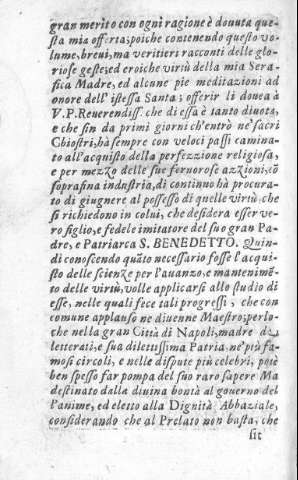 gran merito con ogni ragione è douuta que-
sta mia offerta; poiche contenendo questo vo-
lume, breui, ma veritieri racconti delle glo-
riose geste; ed eroiche virtù della mia Sera-
fica Madre, ed alcune pie meditazioni ad
onore dell'istessa Santa; offerir li douea à
V.P. Reuerendiss. che di essa è tanto diuota,
e che sin da primi giorni ch'entrò ne' sacri
Chiostri, hà sempre con veloci passi camina-
to all'acquisto della perfezzione religiosa,
e per mezzo delle sue feruorose azzioni, cō
soprafina industria, di continuo hà procura-
to di giugnere al possesso di quelle virtù, che
si richiedono in colui, che desidera esser ve-
ro figlio, e fedele imitatore del suo gran Pa-
dre, e Patriarca S. BENEDETTO. Quin-
di conoscendo quāto necessario fosse l'acqui-
sto delle scienze per l'auanzo, e mantenimē-
to delle virtù, volle applicarsi allo studio di
esse, nelle quali fece tali progressi, che con
comune applauso ne diuenne Maestro; perlo-
che nella gran Città di Napoli, madre de
letterati, e sua dilettissima Patria ne' più fa-
mosi circoli, e nelle dispute più celebri, potè
ben spesso far pompa del suo raro sapere Ma
destinato dalla diuina bontà al gouerno del
l'anime, ed eletto alla Dignità Abbaziale,
considerando che al Prelato non basta, che
sit